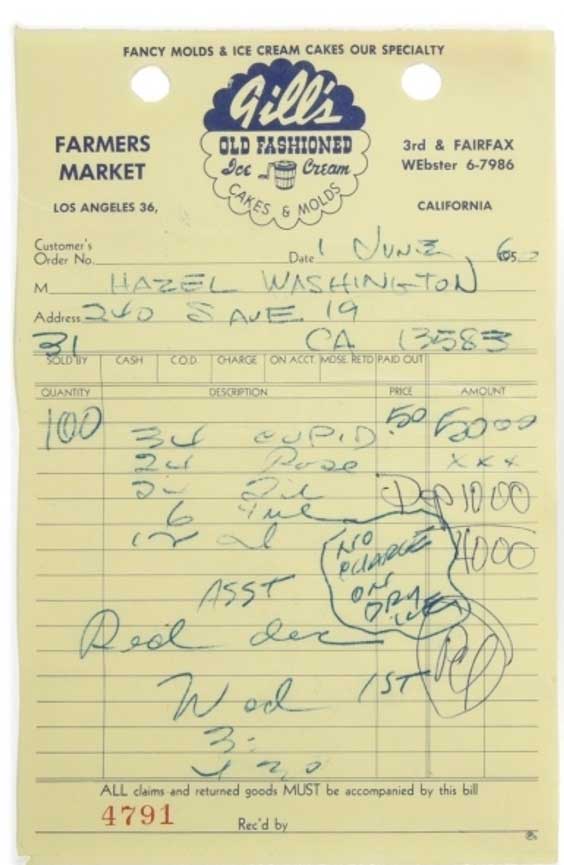 FANCY MOLDS & ICE CREAM CAKES OUR SPECIALTY
Gill's
OLD FASHIONED
Ice Cream
CAKES & MOLDS
FARMERS
MARKET
LOS ANGELES 36,
3rd & FAIRFAX
WEbster 6-7986
CALIFORNIA
Customer's
Order No.
Date 1 JUNE,
M HAZEL WASHINGTON
Address 240 S AVE 19
31 CA 13583
SOLD BY CASH C.O.D. CHARGE ON ACCT. MDSE. RETD PAID OUT
QUANTITY DESCRIPTION PRICE AMOUNT
100 34 CUPID .50 5000
24 Rose xxx
Dep 1000
6
4000
NO
CHARGE
ON
DRY
ICE
ASST
Red
Wed 1ST
3:
ALL claims and returned goods MUST be accompanied by this bill
4791
Rec'd by